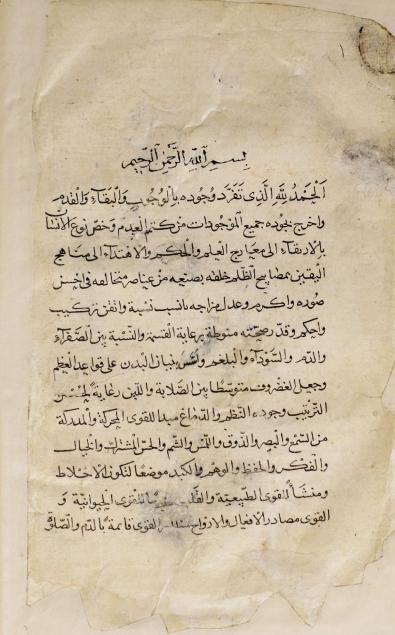 بسم الله الرحمن الرحيم
الحمد لله الذي تفرد وجوده بالوجوب والبقاء والقدم
واخرج بجوده جميع الموجودات من كتم العدم وخص نوع الانسان
بالارتقاء الى معارج العلم والحكم والاهتداء الى مناهج
اليقين بمصابيح الظلم خلقه بصنعه من عناصر متخالفه في احسن
صوره واكرم وعدل مزاجه بانسب نسبة واتقن تركيب
واحكم وقدر صحته منوطة برعاية القسمة والنسبة بين الصفراء
والدم والسوداء والبلغم واسس بنيان البدن على قواعد العظم
وجعل الغضروف متوسطا بين الصلابة واللين رعاية لحسن
الترتيب وجوده النظم والدماغ مبدا للقوى المحركة والمدركة
من السمع والبصر والذوق واللمس والشم والحس المشترك والخيال
والفكر والحفظ والوهم والكبد موضعا لتكون الاخلاط
ومنشأ القوى الطبيعية والقلب للقوى الحيوانية و
القوى مصادر الافعال والارواح القوى قائمة بالدم والصلوة